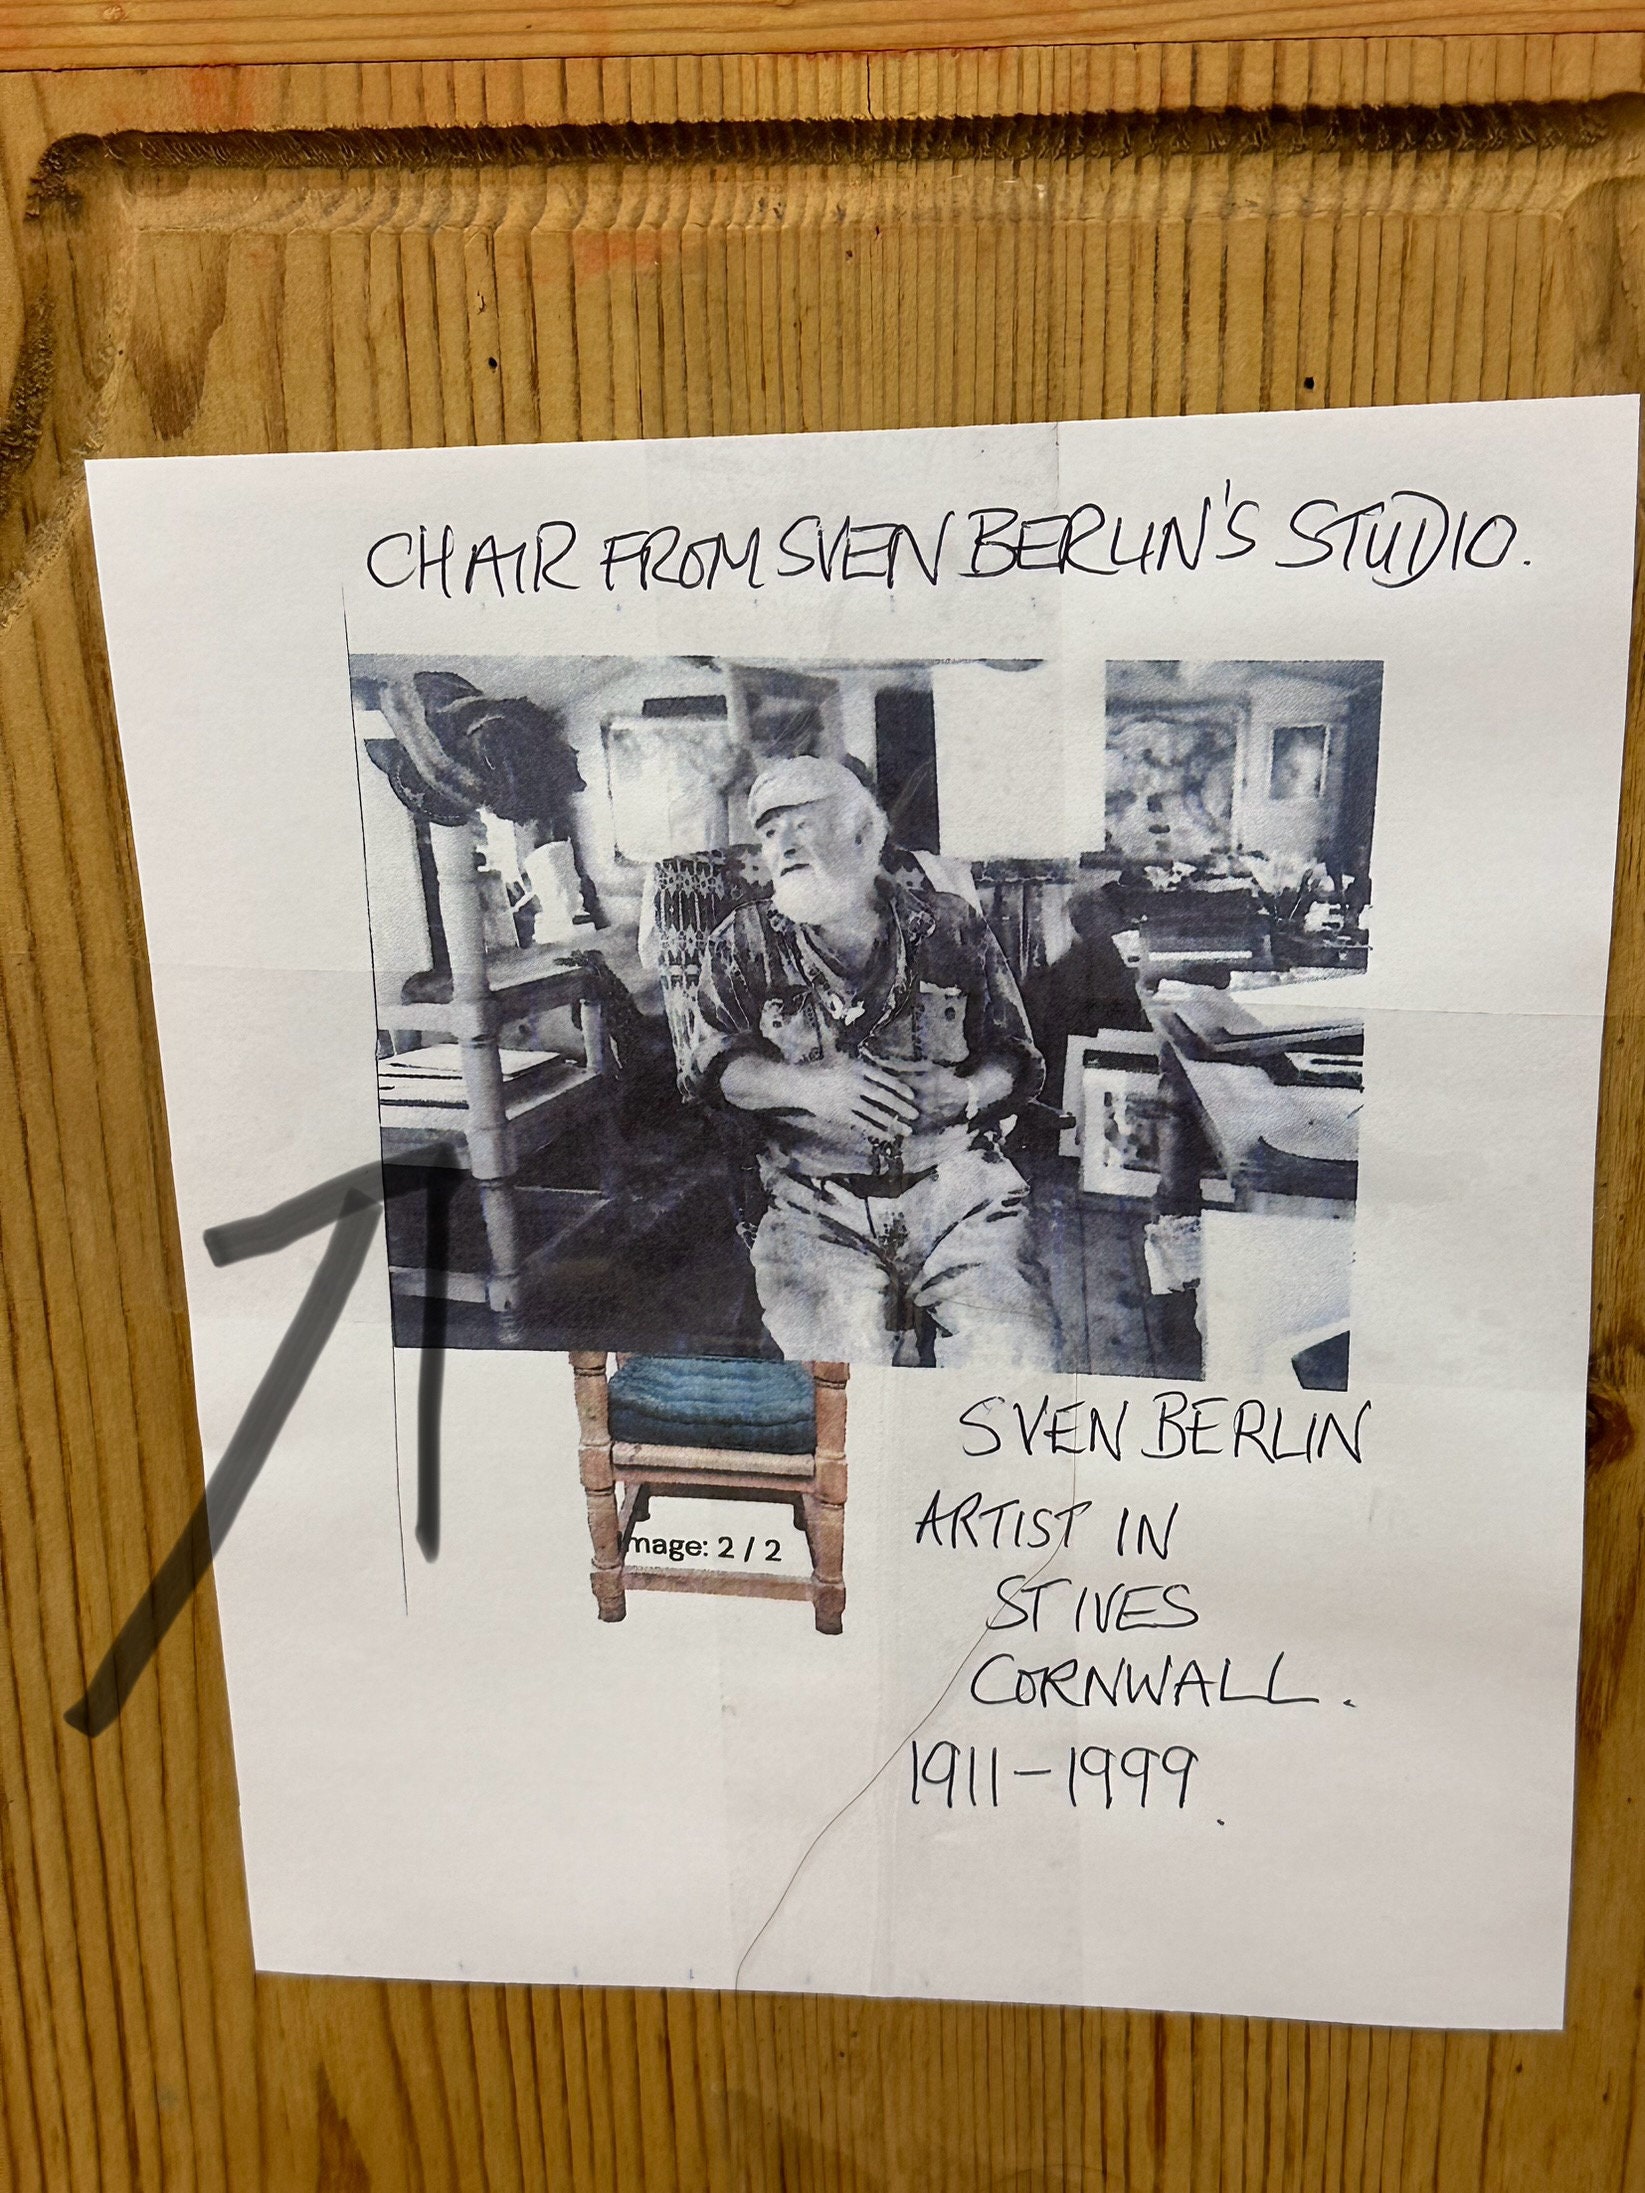 CHAIR FROM SVEN BERLIN'S STUDIO.
SVEN BERLIN
ARTIST IN
mage: 2 / 2
ST IVES
CORNWALL.
1911-1999.